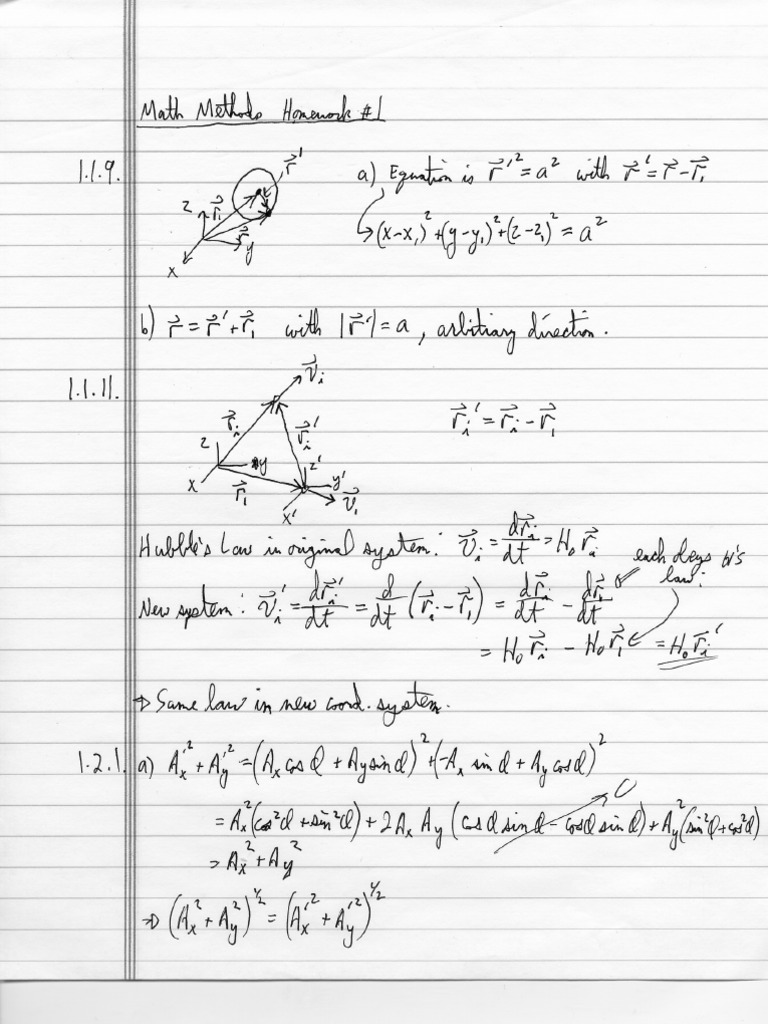 Math Methods Homework #1
1.1.9. a) Equation is r⃗'² = a² with r⃗' = r⃗ - r⃗₁
z r⃗₁ r⃗' r⃗ y x
↳ (x-x₁)² + (y-y₁)² + (z-z₁)² = a²
b) r⃗ = r⃗' + r⃗₁ with |r⃗'| = a, arbitrary direction.
1.1.11. v⃗ᵢ
r⃗ᵢ r⃗ᵢ' r⃗ᵢ' = r⃗ᵢ - r⃗₁
z y x r⃗₁ z' y' x' v⃗₁
Hubble's Law in original system: v⃗ᵢ = dr⃗ᵢ/dt = H₀ r⃗ᵢ
each obeys H's law:
New system: v⃗ᵢ' = dr⃗ᵢ'/dt = d/dt (r⃗ᵢ - r⃗₁) = dr⃗ᵢ/dt - dr⃗₁/dt
= H₀ r⃗ᵢ - H₀ r⃗₁ = H₀ r⃗ᵢ'
⇒ Same law in new coord. system.
1.2.1. a) Aₓ'² + A_y'² = (Aₓ cos φ + A_y sin φ)² + (-Aₓ sin φ + A_y cos φ)²
= Aₓ² (cos²φ + sin²φ) + 2Aₓ A_y (cos φ sin φ - cos φ sin φ) + A_y² (sin²φ + cos²φ) 0
= Aₓ² + A_y²
⇒ (Aₓ² + A_y²)^1/2 = (Aₓ'² + A_y'²)^1/2